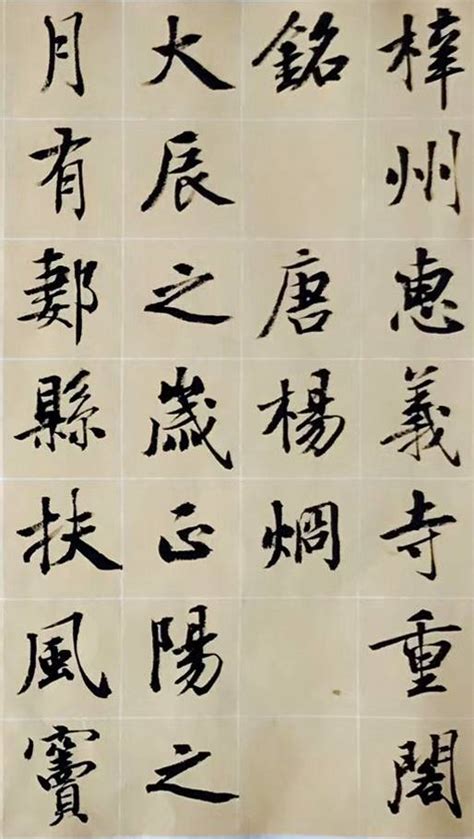 梓州惠義寺重閣
銘 唐楊炯
大辰之歲正陽之
月有郪縣扶風竇